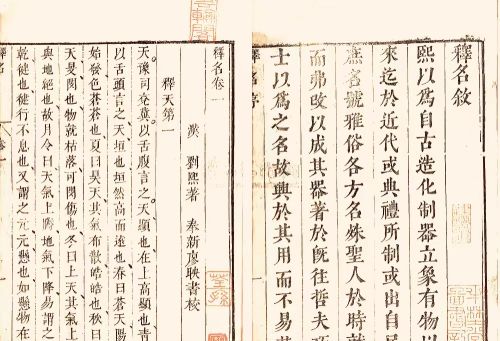 釋名敘
熙以為自古造化制器立象有物以
來迄於近代或典禮所制或出自民
庶名號雅俗各方名殊聖人於時就
而弗改以成其器著於既往哲夫巧
士以為之名故興於其用而不易其
釋名序
釋名卷一
漢 劉熙著 奉新虞映書校
釋天第一
天豫司兗冀以舌腹言之天顯也在上高顯也青
以舌頭言之天垣也垣然高而遠也春曰蒼天陽
始發色蒼蒼也夏曰昊天其氣布散皓皓也秋曰
天旻閔也物就枯落可閔傷也冬曰上天其氣上
與地絕也故月令曰天氣上騰地氣下降易謂之
乾健也健行不息也又謂之元元懸也如懸物在
釋名 卷一